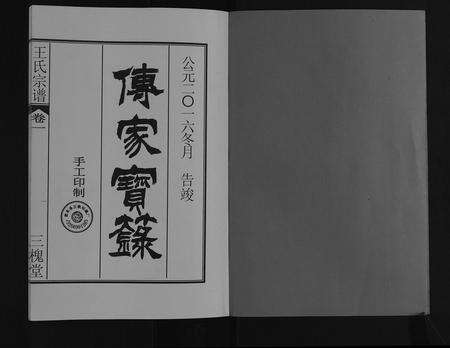 公元二〇一六冬月 告竣
傳家寶籙
手工印制
王氏宗谱 卷一 三槐堂